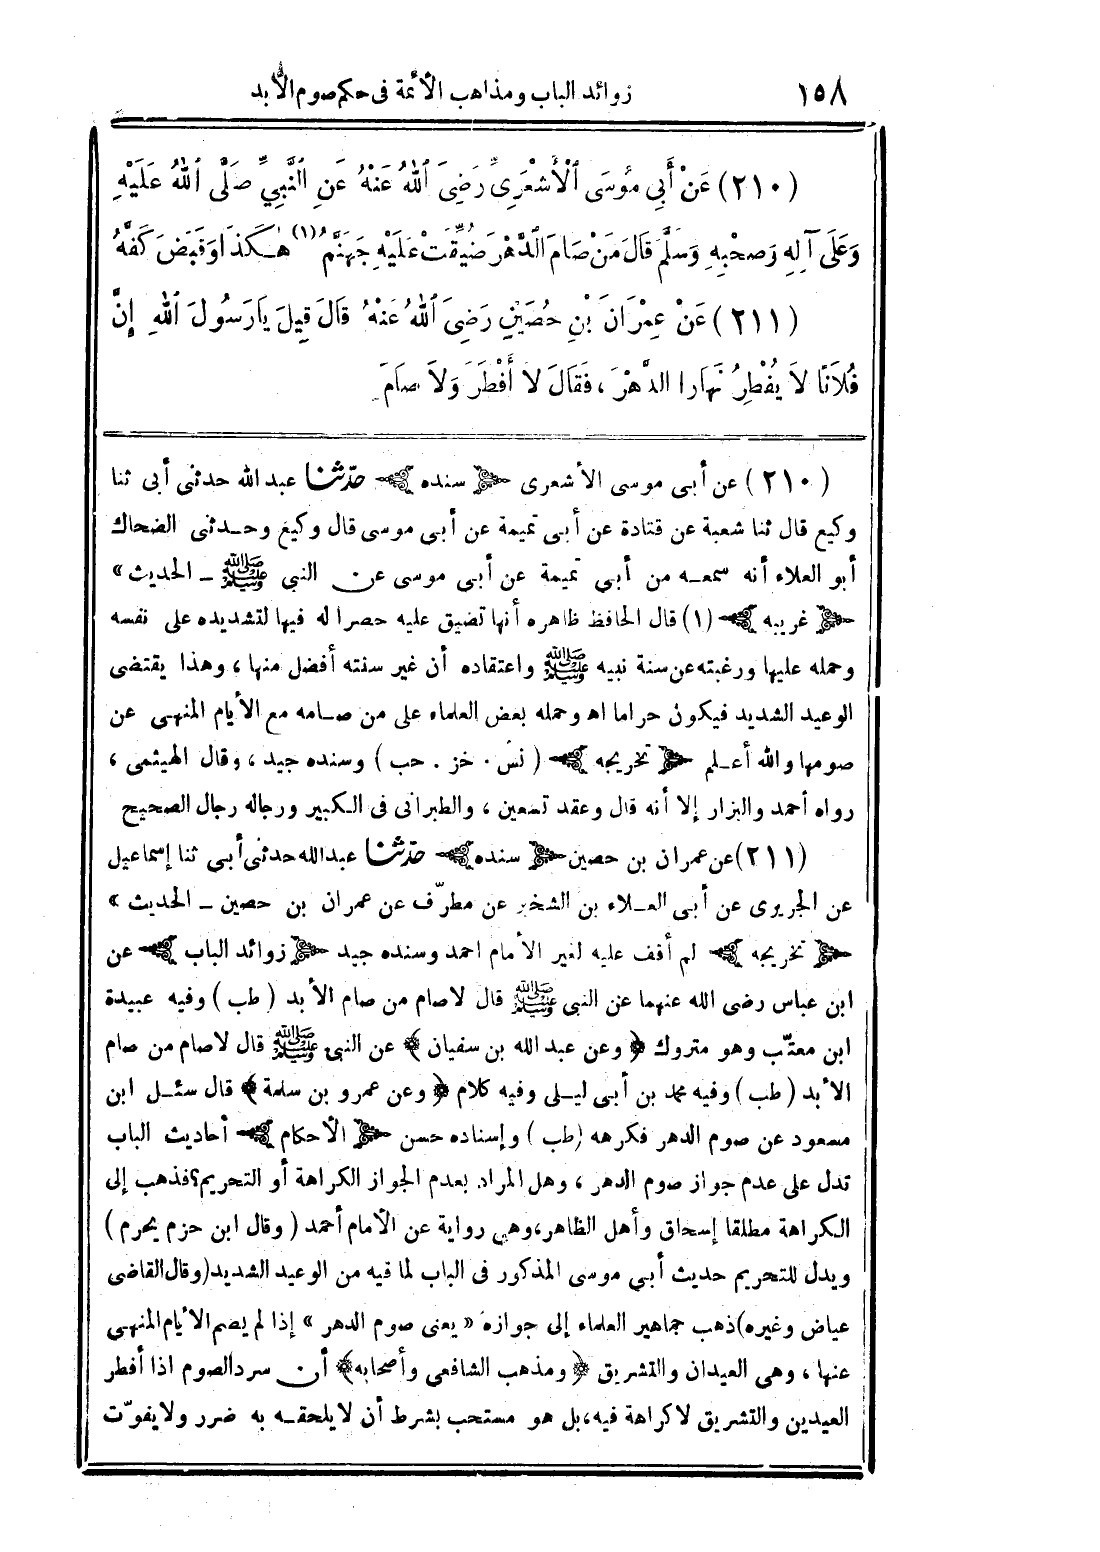 ١٥٨ زوائد الباب ومذاهب الأئمة فى حكم صوم الأبد
(٢١٠) عَنْ أَبِي مُوسَى الْأَشْعَرِيِّ رَضِيَ اللهُ عَنْهُ عَنِ النَّبِيِّ صَلَّى اللهُ عَلَيْهِ
وَعَلَى آلِهِ وَصَحْبِهِ وَسَلَّمَ قَالَ مَنْ صَامَ الدَّهْرَ ضُيِّقَتْ عَلَيْهِ جَهَنَّمُ (١) هٰكَذَا وَقَبَضَ كَفَّهُ
(٢١١) عَنْ عِمْرَانَ بْنِ حُصَيْنٍ رَضِيَ اللهُ عَنْهُ قَالَ قِيلَ يَا رَسُولَ اللهِ إِنَّ
فُلَانًا لَا يُفْطِرُ نَهَارًا الدَّهْرَ ، فَقَالَ لَا أَفْطَرَ وَلَا صَامَ
(٢١٠) عن أبى موسى الأشعرى ﴿ سنده ﴾ حدّثنا عبد الله حدثنى أبى ثنا
وكيع قال ثنا شعبة عن قتادة عن أبى تميمة عن أبى موسى قال وكيع وحدثنى الضحاك
أبو العلاء أنه سمعه من أبي تميمة عن أبى موسى عن النبى ﷺ ــ الحديث »
﴿ غريبه ﴾ (١) قال الحافظ ظاهره أنها تضيق عليه حصرا له فيها لتشديده على نفسه
وحمله عليها ورغبته عن سنة نبيه ﷺ واعتقاده أن غير سنته أفضل منها ، وهذا يقتضى
الوعيد الشديد فيكون حراما اه وحمله بعض العلماء على من صامه مع الأيام المنهى عن
صومها والله أعلم ﴿ تخريجه ﴾ ( نس . خز . حب ) وسنده جيد ، وقال الهيثمى ،
رواه أحمد والبزار إلا أنه قال وعقد تسعين ، والطبرانى فى الكبير ورجاله رجال الصحيح
(٢١١) عن عمران بن حصين ﴿ سنده ﴾ حدّثنا عبدالله حدثنى أبى ثنا إسماعيل
عن الجريرى عن أبى العلاء بن الشخير عن مطرّف عن عمران بن حصين ــ الحديث »
﴿ تخريجه ﴾ لم أقف عليه لغير الأمام احمد وسنده جيد ﴿ زوائد الباب ﴾ عن
ابن عباس رضى الله عنهما عن النبى ﷺ قال لاصام من صام الأبد ( طب ) وفيه عبيدة
ابن معتّب وهو متروك ﴿ وعن عبد الله بن سفيان ﴾ عن النبى ﷺ قال لاصام من صام
الأبد ( طب ) وفيه محمد بن أبى ليلى وفيه كلام ﴿ وعن عمرو بن سلمة ﴾ قال سئل ابن
مسعود عن صوم الدهر فكرهه (طب ) وإسناده حسن ﴿ الأحكام ﴾ أحاديث الباب
تدل على عدم جواز صوم الدهر ، وهل المراد بعدم الجواز الكراهة أو التحريم؟ فذهب إلى
الكراهة مطلقا إسحاق وأهل الظاهر، وهي رواية عن الأمام أحمد ( وقال ابن حزم يحرم )
ويدل للتحريم حديث أبي موسى المذكور فى الباب لما فيه من الوعيد الشديد (وقال القاضى
عياض وغيره) ذهب جماهير العلماء إلى جوازه « يعنى صوم الدهر » إذا لم يصم الأيام المنهى
عنها ، وهى العيدان والتشريق ﴿ ومذهب الشافعي وأصحابه ﴾ أن سرد الصوم اذا أفطر
العيدين والتشريق لا كراهة فيه، بل هو مستحب بشرط أن لا يلحقه به ضرر ولا يفوّت